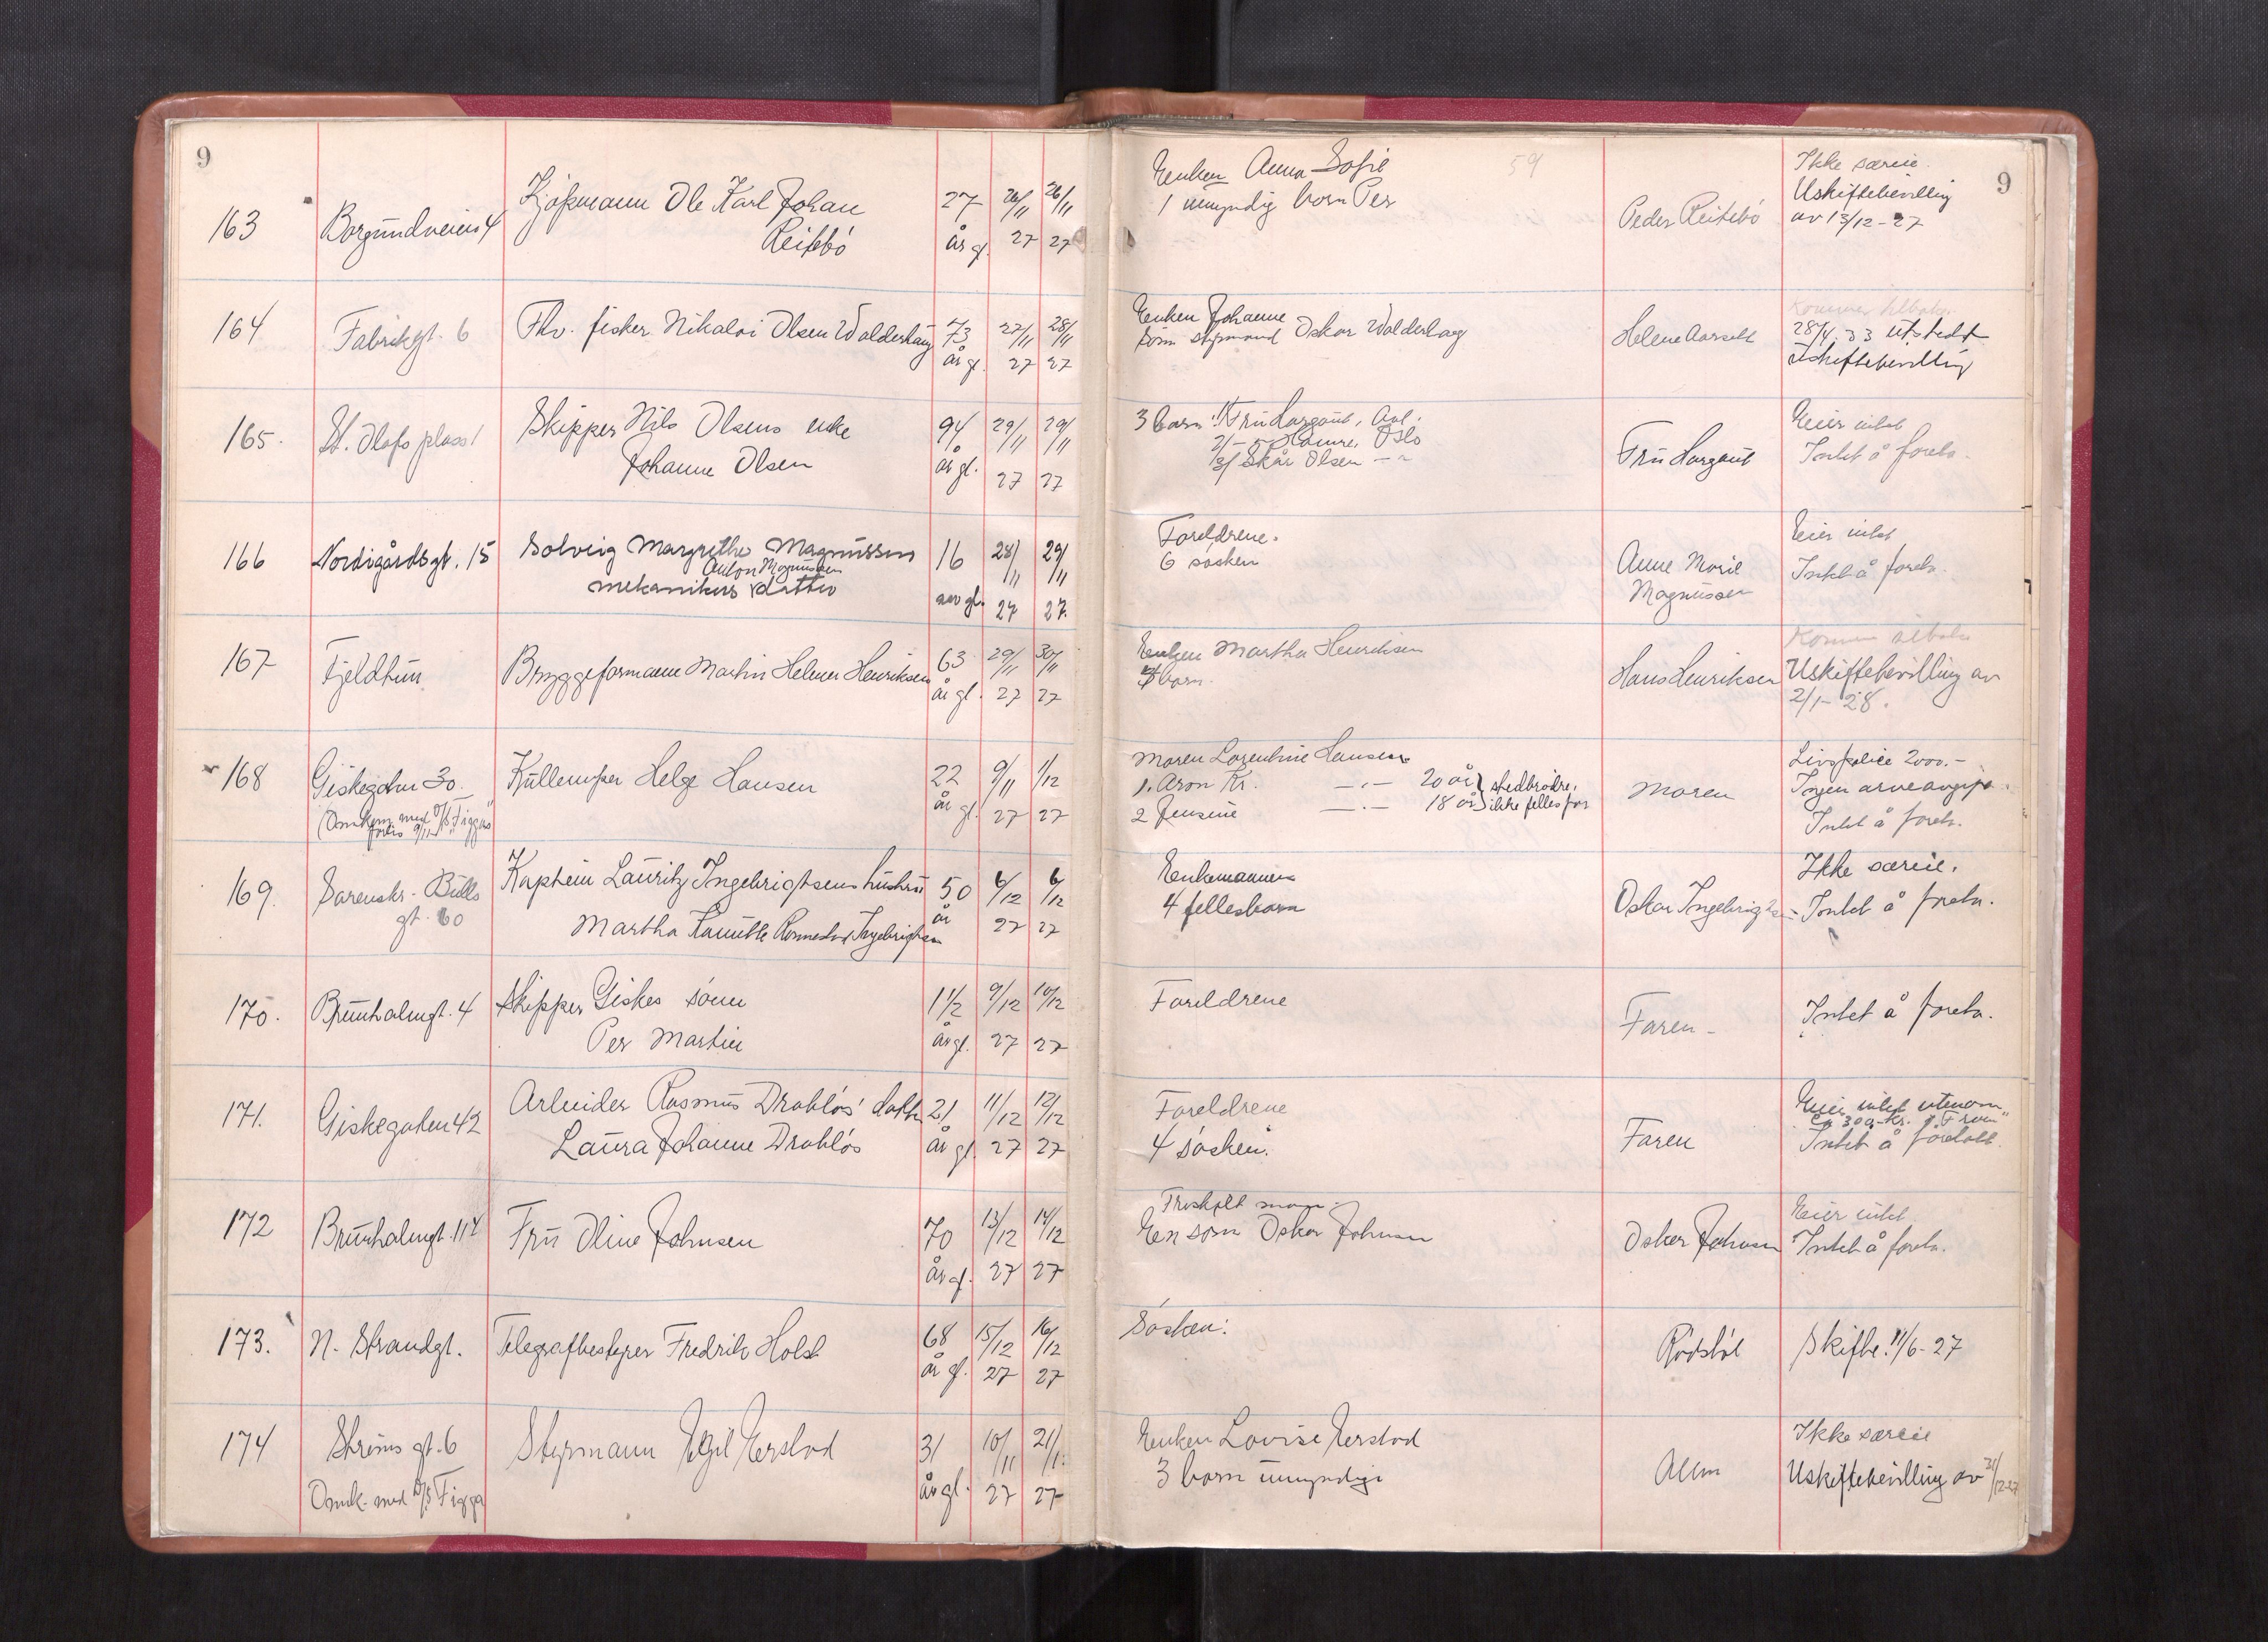 9
163 Borgundveien 4 Kjøpmann Ole Karl Johan 27 26/11 26/11
Reitebø år gl. 27 27
164 Fabrikgt. 6 Fhv. fisker Nikolai Olsen Walderhaug 73 27/11 28/11
år gl. 27 27
165. St. Olafs plass 1 Skipper Nils Olsens enke 94 29/11 29/11
Johanne Olsen år gl. 27 27
166 Nordigårdsgt. 15 Solveig Margrethe Magnussen 16 28/11 29/11
Anton Magnussen
mekanikers datter aar gl. 27 27.
167 Fjeldtun Bryggeformann Martin Helmer Henriksen 63 29/11 30/11
år gl. 27 27
168 Giskegaten 30. Kullemper Helge Hansen 22 9/11 1/12
(Omkom med D/S "Figgjo" år gl. 27 27
forlis 9/11
169. Sorenskr. Bulls Kaptein Lauritz Ingebrigtsens hustru 50 6/12 6/12
gt. 60 Martha Ingebrigtsen år 27 27
170. Brunholmgt. 4 Skipper Giskes sønn 1 1/2 9/12 10/12
Per Martin år gl. 27 27
171. Giskegaten 42 Arbeider Rasmus Drabløs' datter 21 11/12 12/12
Laura Johanne Drabløs år gl. 27 27
172 Brunholmgt. 11 Fru Oline Johnsen 70 13/12 14/12
år gl. 27 27
173. N. Strandgt. Telegrafbestyrer Fredrik Holst 68 15/12 16/12
år gl. 27 27
174 Strøms gt. 6 Styrmann Egil Jerstad 31 10/11 21/1
Omk. med D/S Figgjo år gl. 27 27
9
59
Enken Anna Sofie Ikke særeie.
1 umyndig barn Per Peder Reitebø Uskiftebevilling
av 13/12-27
Enken Johanne Kommer tilbake
sønn styrmand Oskar Walderhaug Helene Aarseth 28/4.33 utstedt
Uskiftebevilling
3 barn: 1/ Fru Largaut, Aal. Eier intet
2/ - - Hamre, Oslo Fru Largaut Intet å foreta.
3/ Skår Olsen - "
Foreldrene. Eier intet
6 søsken Anne Marie Intet å foreta.
Magnussen
Enken Martha Henriksen Kommer tilbake
barn. Hans Henriksen Uskiftebevilling av
2/1-28.
Moren Laurentine Hansen Livspolice 2000.-
1. Aron Kr. -.- 20 år } stedbrødre, Moren Ingen arveavgift.
2 Jensine -.- 18 år } ikke felles far Intet å foreta.
Enkemannen Ikke særeie.
4 fellesbarn Oskar Ingebrigtsen Intet å foreta.
Foreldrene Faren - Intet å foreta.
Foreldrene Eier intet utenom
ca 300 kr. i "Fram"
4 søsken. Faren Intet å foreta
Fraskilt mann. Eier intet
En sønn Oskar Johnsen Oskar Johnsen Intet å foreta.
Søsken: Rødstøl Skifte. 11/6-27
Enken Lovise Jerstad Ikke særeie
3 barn umyndige Uskiftebevilling av 31/12-27